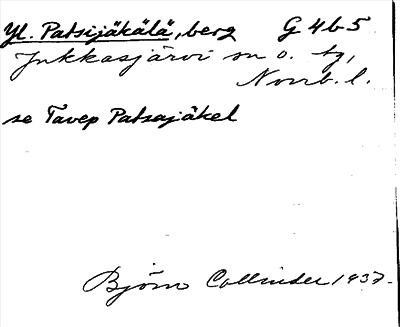 Yl. Patsijäkälä, berg G 4b5
Jukkasjärvi sn o. tg,
Norrb. l.
se Tavep Patsajäkel
Björn Collinder 1937.